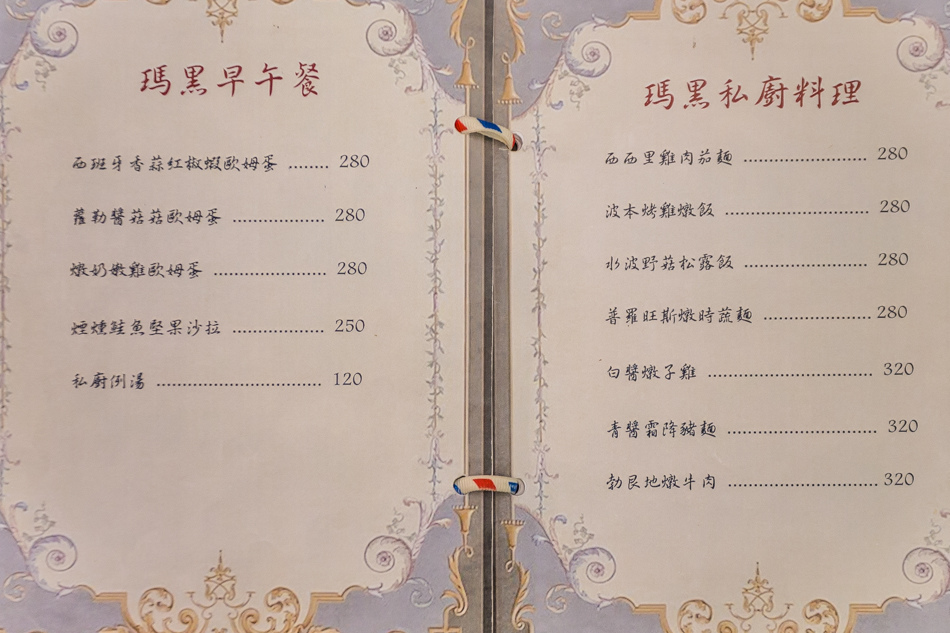 瑪黑早午餐
西班牙香蒜紅椒蝦歐姆蛋 ........ 280
蘿勒醬菇菇歐姆蛋 .................. 280
燉奶嫩雞歐姆蛋 ...................... 280
煙燻鮭魚堅果沙拉 .................. 250
私廚例湯 ................................. 120
瑪黑私廚料理
西西里雞肉茄麵 ......................... 280
波本烤雞燉飯 ............................. 280
水波野菇松露飯 ......................... 280
普羅旺斯燉時蔬麵 ..................... 280
白醬燉子雞 ................................ 320
青醬霜降豬麵 ............................. 320
勃艮地燉牛肉 ............................. 320